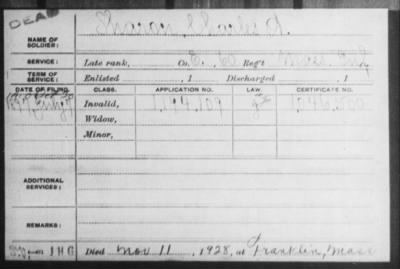 DEAD
NAME OF SOLDIER: Sharon, Charles A.
SERVICE: Late rank, Co. E, 60 Reg't Mass. Inf
TERM OF SERVICE: Enlisted , 1 Discharged , 1
DATE OF FILING. CLASS. APPLICATION NO. LAW. CERTIFICATE NO.
1897 July Invalid, 1,194,109
Widow,
Minor,
ADDITIONAL SERVICES:
REMARKS:
1HG Died Nov 11, 1928, at Franklin, Mass